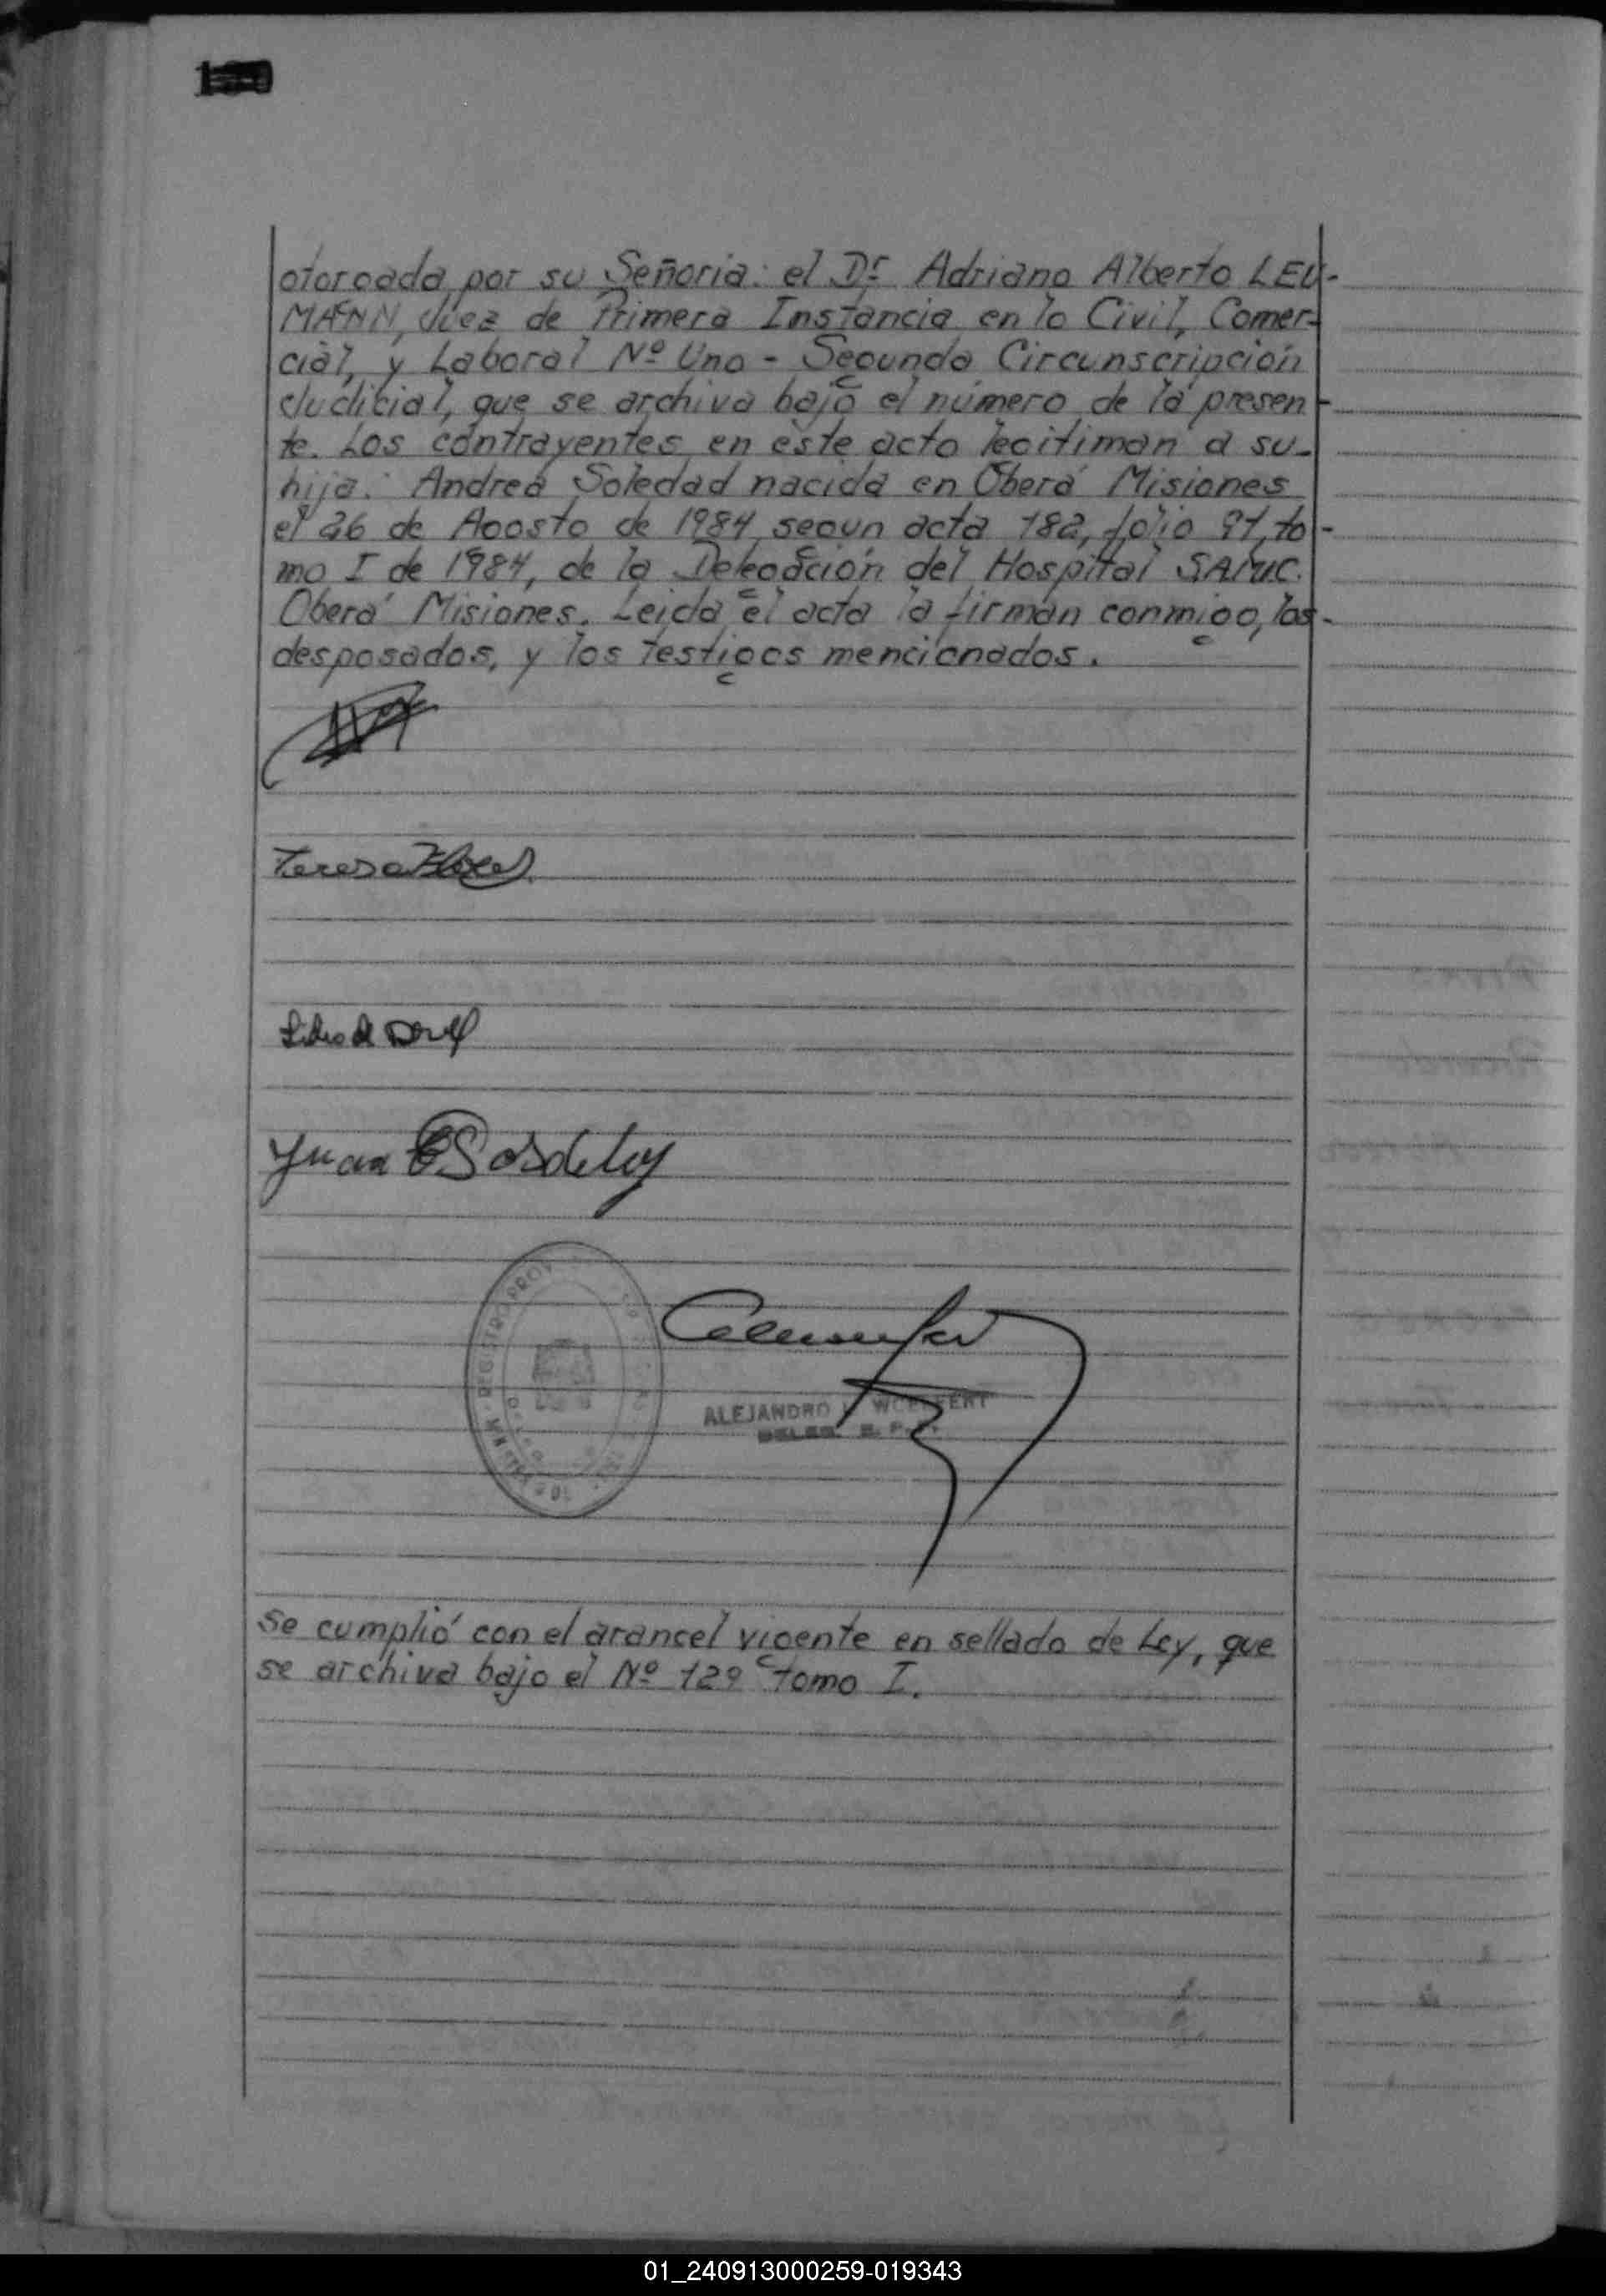 otorgada por su Señoria: el Dr. Adriano Alberto LEU-
MANN, Juez de Primera Instancia en lo Civil, Comer-
cial, y Laboral Nº Uno - Segunda Circunscripción
Judicial, que se archiva bajo el número de la presen-
te. Los contrayentes en este acto legitiman a su-
hija: Andrea Soledad nacida en Oberá Misiones
el 26 de Agosto de 1984, segun acta 182, folio 91, to-
mo I de 1984, de la Delegación del Hospital SAMIC.
Oberá Misiones. Leida el acta la firman conmigo, los-
desposados, y los testigos mencionados.
Teresa
Juan
REGISTRO PROV
ALEJANDRO
Se cumplió con el arancel vigente en sellado de Ley, que
se archiva bajo el Nº 129 tomo I.
01_240913000259-019343